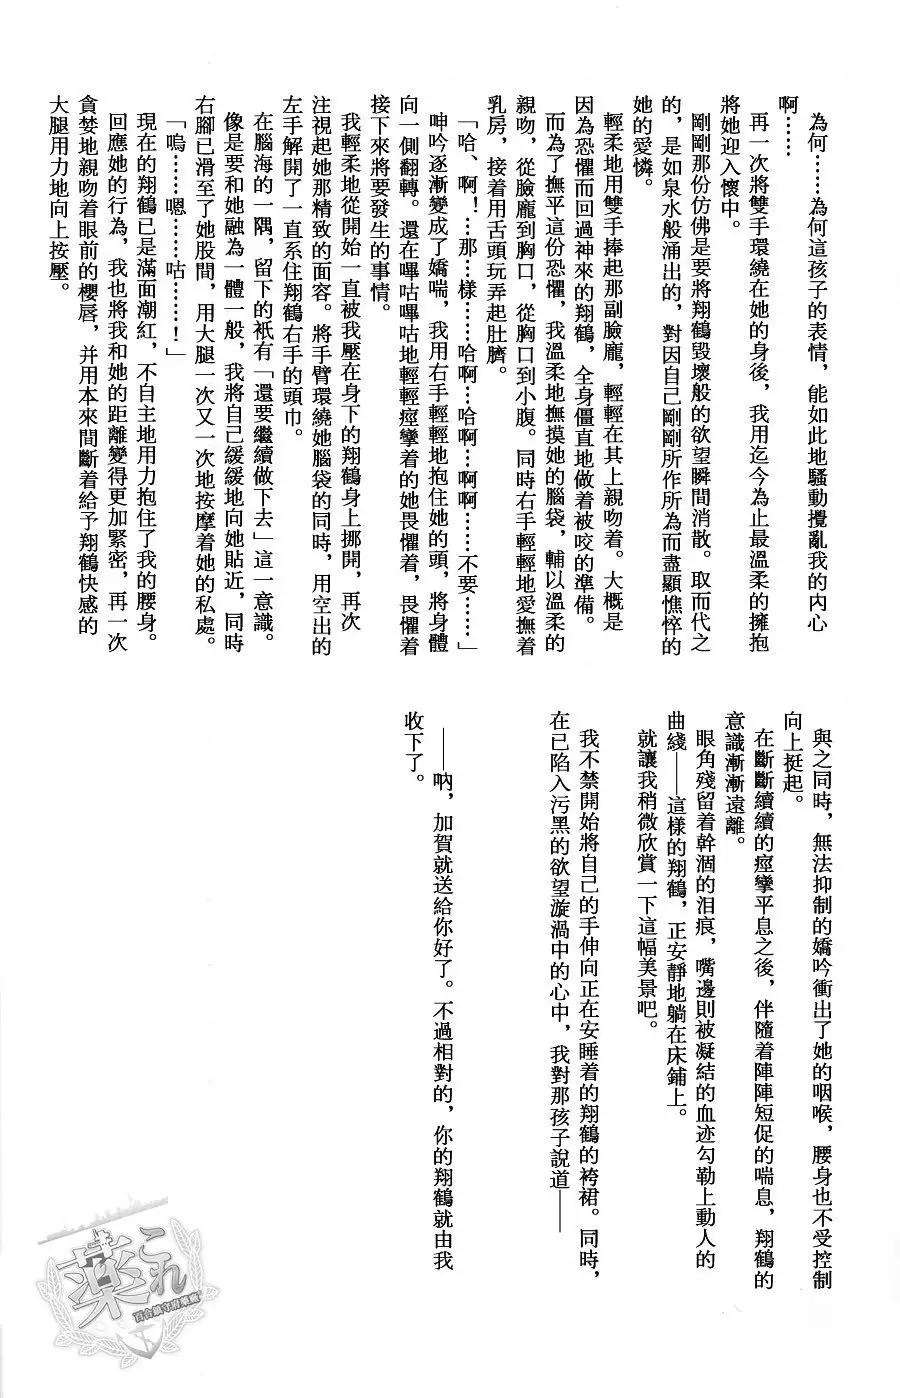 為何……為何這孩子的表情，能如此地騷動攪亂我的內心
啊……
再一次將雙手環繞在她的身後，我用迄今為止最溫柔的擁抱
將她迎入懷中。
剛剛那份仿佛是要將翔鶴毀壞般的欲望瞬間消散。取而代之
的，是如泉水般涌出的，對因自己剛剛所作所為而盡顯憔悴的
她的愛憐。
輕柔地用雙手捧起那副臉龐，輕輕在其上親吻着。大概是
因為恐懼而回過神來的翔鶴，全身僵直地做着被咬的準備。
而為了撫平這份恐懼，我溫柔地撫摸她的腦袋，輔以溫柔的
親吻，從臉龐到胸口，從胸口到小腹。同時右手輕輕地愛撫着
乳房，接着用舌頭玩弄起肚臍。
「哈、啊！…那…樣……哈啊…哈啊…啊啊……不要……」
呻吟逐漸變成了嬌喘，我用右手輕輕地抱住她的頭，將身體
向一側翻轉。還在嗶咕嗶咕地輕輕痙攣着的她畏懼着，畏懼着
接下來將要發生的事情。
我輕柔地從開始一直被我壓在身下的翔鶴身上挪開，再次
注視起她那精致的面容。將手臂環繞她腦袋的同時，用空出的
左手解開了一直系住翔鶴右手的頭巾。
在腦海的一隅，留下的衹有「還要繼續做下去」這一意識。
像是要和她融為一體一般，我將自己緩緩地向她貼近，同時
右腳已滑至了她股間，用大腿一次又一次地按摩着她的私處。
「嗚……嗯……咕……！」
現在的翔鶴已是滿面潮紅，不自主地用力抱住了我的腰身。
回應她的行為，我也將我和她的距離變得更加緊密，再一次
貪婪地親吻着眼前的櫻唇，并用本來間斷着給予翔鶴快感的
大腿用力地向上按壓。
與之同時，無法抑制的嬌吟衝出了她的咽喉，腰身也不受控制
向上挺起。
在斷斷續續的痙攣平息之後，伴隨着陣陣短促的喘息，翔鶴的
意識漸漸遠離。
眼角殘留着幹涸的泪痕，嘴邊則被凝結的血迹勾勒上動人的
曲綫——這樣的翔鶴，正安靜地躺在床鋪上。
就讓我稍微欣賞一下這幅美景吧。
我不禁開始將自己的手伸向正在安睡着的翔鶴的袴裙。同時，
在已陷入污黑的欲望漩渦中的心中，我對那孩子說道——
——吶，加賀就送給你好了。不過相對的，你的翔鶴就由我
收下了。